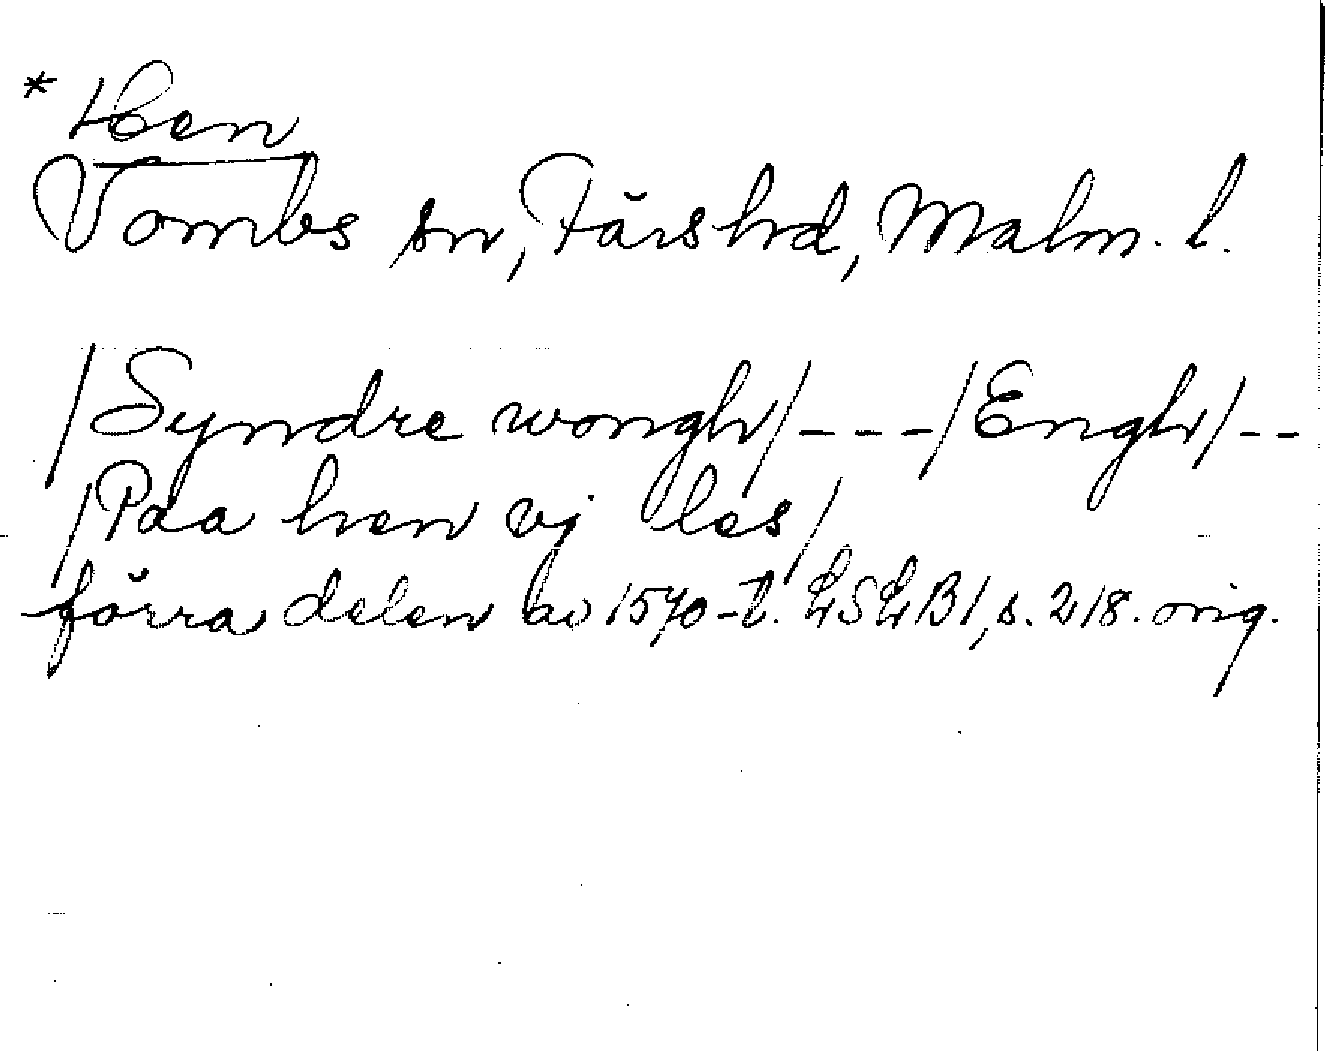 * Hen
Vombs sn, Färs hd, Malm. l.
/Syndre wongh/---/Engh/--
/Paa hen vj les/
förra delen av 1570-t. LSLB1, s. 218. orig.